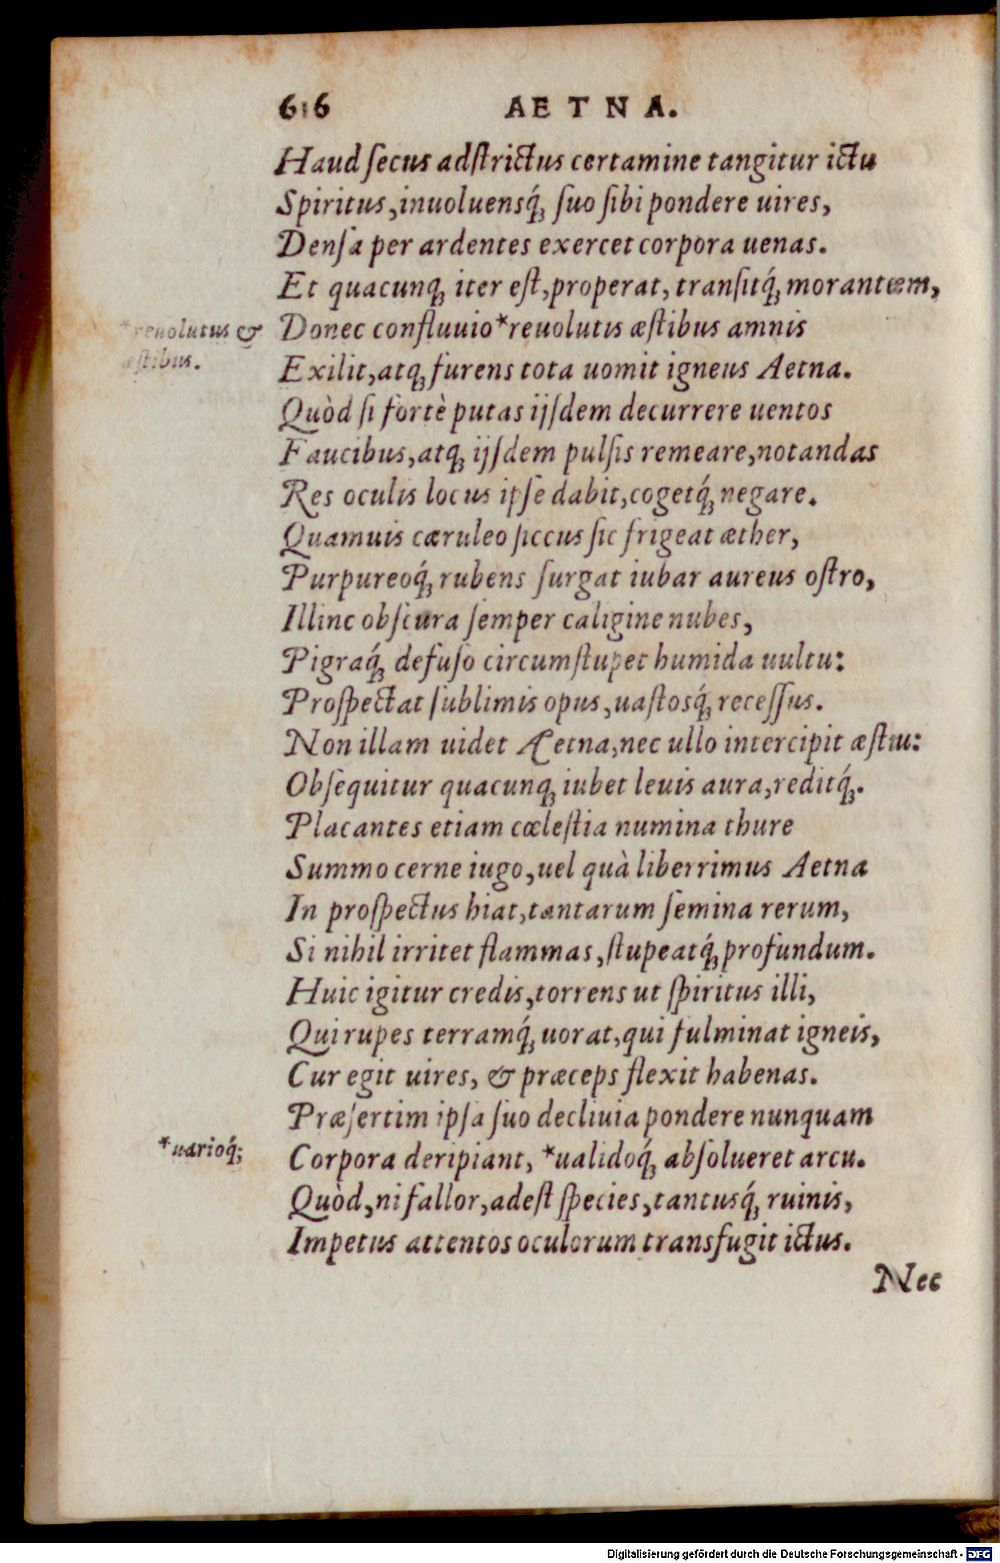 616 AETNA.
Haud ſecus adſtrictus certamine tangitur ictu
Spiritus, inuoluensq́; ſuo ſibi pondere uires,
Denſa per ardentes exercet corpora uenas.
Et quacunq; iter eſt, properat, tranſitq́; morantem,
*reuolutus & Donec confluuio *reuolutis æſtibus amnis
æſtibus. Exilit, atq; furens tota uomit igneus Aetna.
Quòd ſi fortè putas ijſdem decurrere uentos
Faucibus, atq; ijſdem pulſis remeare, notandas
Res oculis locus ipſe dabit, cogetq́; negare.
Quamuis cæruleo ſiccus ſic frigeat æther,
Purpureoq́; rubens ſurgat iubar aureus oſtro,
Illinc obſcura ſemper caligine nubes,
Pigraq́; defuſo circumſtupet humida uultu:
Proſpectat ſublimis opus, uaſtosq́; receſſus.
Non illam uidet Aetna, nec ullo intercipit æſtu:
Obſequitur quacunq; iubet leuis aura, reditq́;.
Placantes etiam cœleſtia numina thure
Summo cerne iugo, uel quà liberrimus Aetna
In proſpectus hiat, tantarum ſemina rerum,
Si nihil irritet flammas, ſtupeatq́; profundum.
Huic igitur credis, torrens ut ſpiritus illi,
Qui rupes terramq́; uorat, qui fulminat igneis,
Cur egit uires, & præceps flexit habenas.
Præſertim ipſa ſuo decliuia pondere nunquam
*uarioq́; Corpora deripiant, *ualidoq́; abſolueret arcu.
Quòd, ni fallor, adeſt ſpecies, tantusq́; ruinis,
Impetus attentos oculorum transfugit ictus.
Nec
Digitalisierung gefördert durch die Deutsche Forschungsgemeinschaft - DFG